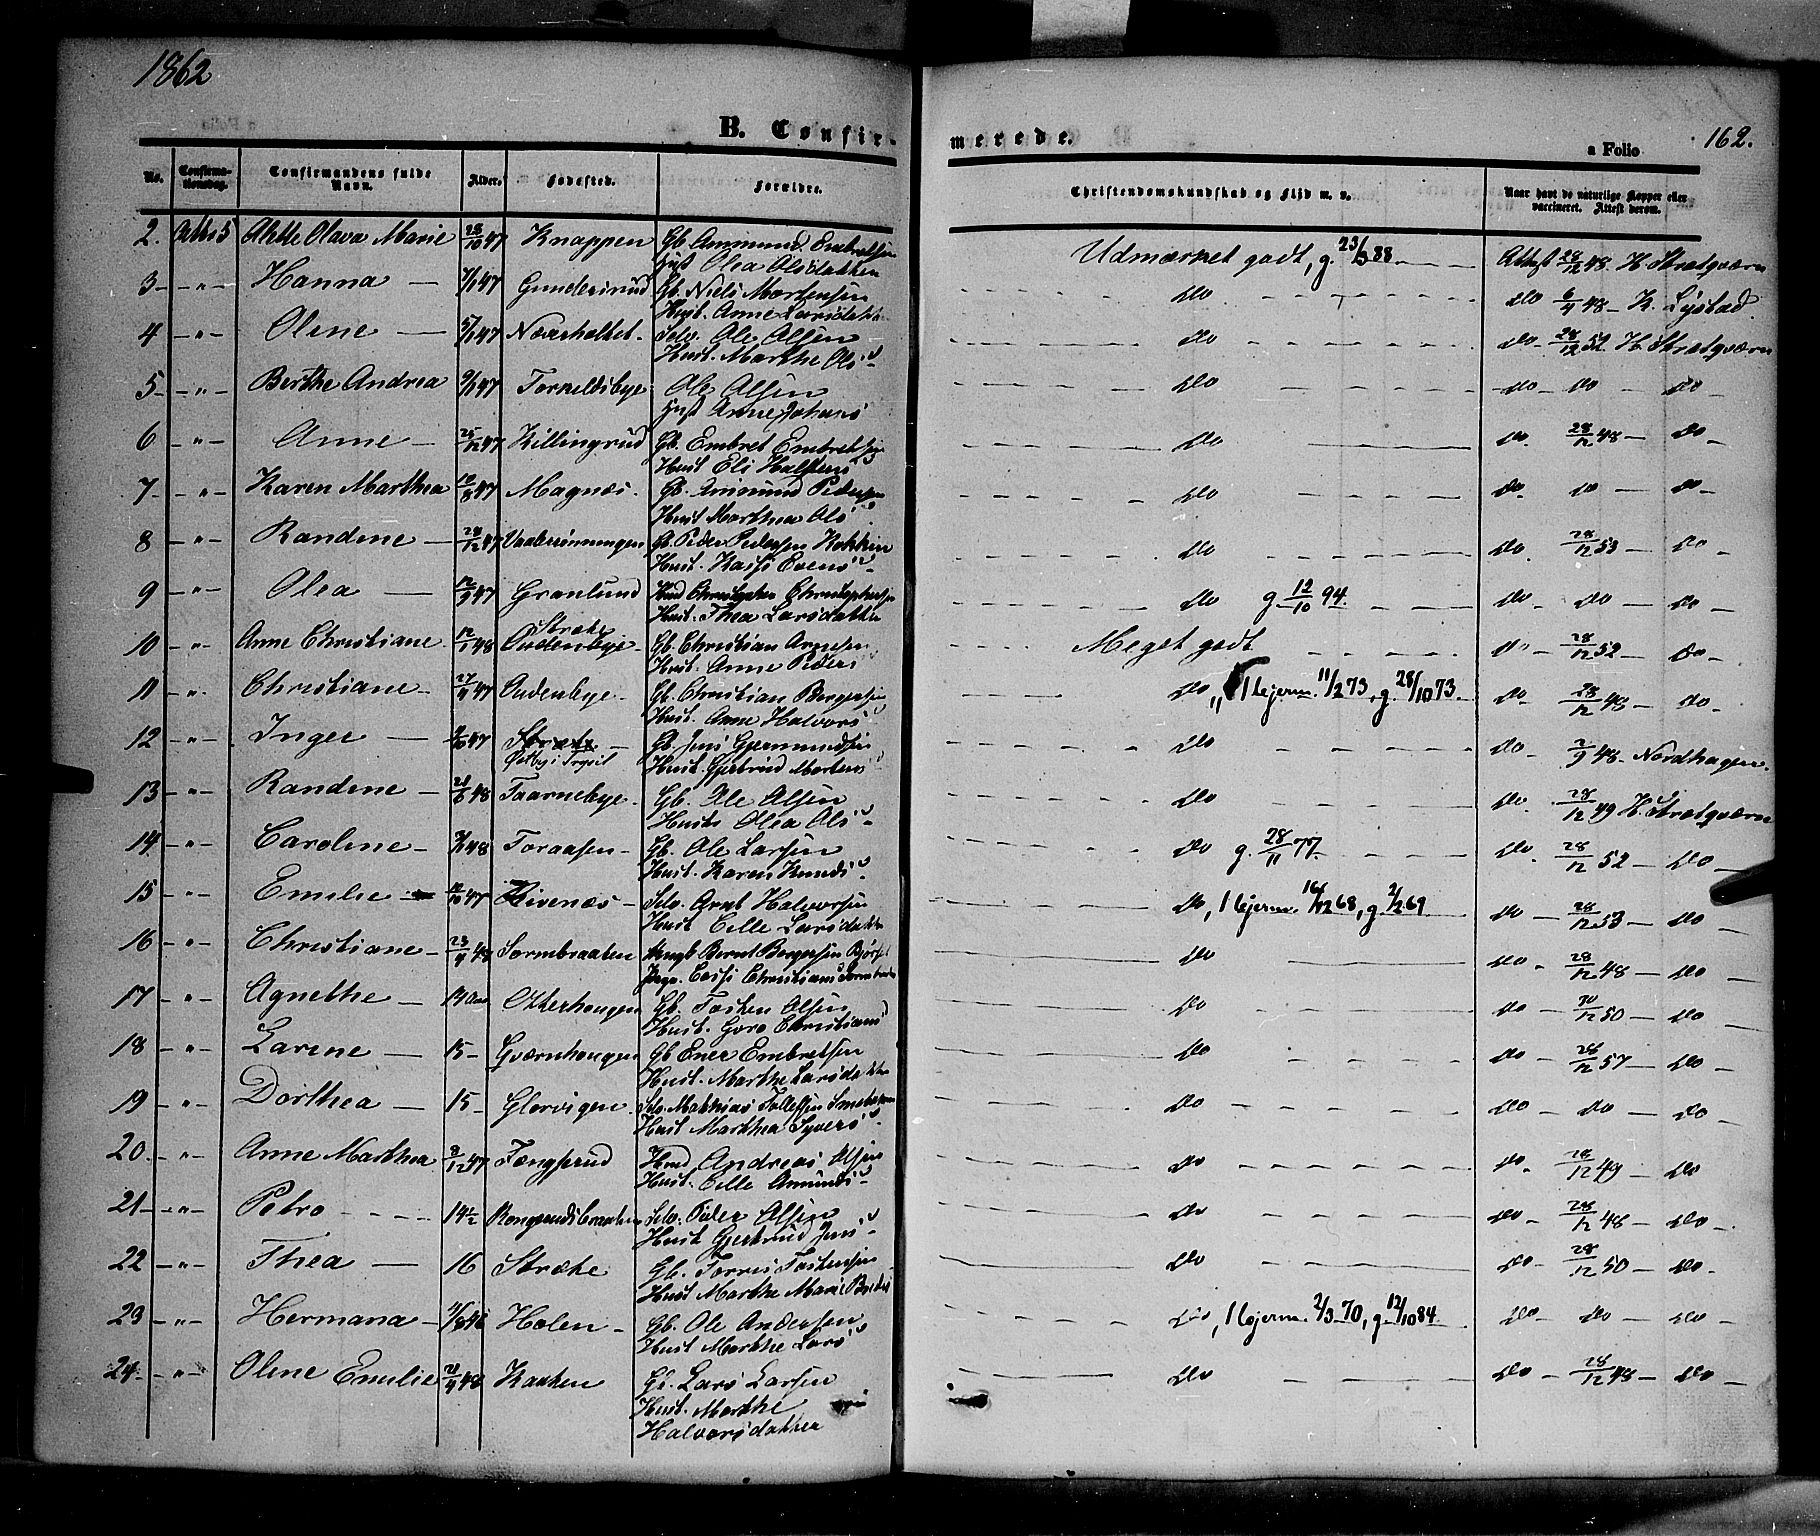 1862
B. Confir-
merede.
a Folio
162.
No.
Confirmationsdag.
Confirmandens fulde Navn.
Alder.
Fødested.
Forældre.
Christendomskundskab og Flid m. v.
Naar havt de naturlige Kopper eller vaccineret. Attest derom.
2. Olava Marie 28/10 47 Knappen Gb. Ammund Embretsen Udmærket godt, g. 23/3 88 Attest 28/12 48
Hust Olea Olsdatter
3 - " - Hanna 47 Gundersrud Gb. Niels Mortensen Do Do 6/4 48 Lystad
Hust. Anne Larsdatter
4 " Oline 47 Selv. Ole Olsen Do Do 28/12
Hust. Marthe Ols
5 - " - Berthe Andrea 47 Torkeldsbye Ole Olsen Do Do Do Do
Hust Anne Johans
6 - " - Anne 25/12 47 Killingrud Gb. Embret Embretsen Do Do 28/12 48 Do
Hust Eli Halstens
7 - " - Karen Marthea 10/8 47 Magnæs Gb. Amund Pedersen Do Do Do Do
Hust Marthea Ols
8 - " - Randine 28/12 47 Gb. Peder Pedersen Do Do 28/12 53 Do
Hust. Kaisi Evens
9 - " - Olea 12/9 47 Granlund Christopher Christophersen Do g 12/10 94. Do Do Do
Hust. Thea Larsdatter
Stræte
10 - " - Anne Christiane 12/1 48 Audenbye Gb. Christian Arnesen Meget godt Do 28/12 52 Do
Hust. Anne Peders
11 - " - Christiane 27/4 47 Audenbye Gb. Christian Borgersen Do, Hjem. 11/2 73, g. 28/10 73 Do 28/12 48 Do
Hust. Anne Halvors
12 - " - Inger 47 Stræte Gb. Jens Gjermundsen Do Do 2/9 48 Nordhagen
Østby i Trysil Hust. Gjertrud Mortens
13 - " - Randine 21/6 48 Taarnebye Gb. Ole Olsen Do Do 28/12 49
Hust. Olea Ols
14 - " - Caroline 48 Toraasen Gb. Ole Larsen Do g. 28/11 77. Do 28/12 52 Do
Hust. Karen Knuds
15 - " - Emilie 47 Rivenæs Selv. Arnt Halvorsen Do, Hjem. 16/12 68, g. 2/2 69 Do 28/12 53 Do
Hust Eille Larsdatter
16 - " - Christiane 23/4 Sormbraaten Bernt Borgersen Do Do 28/12 48 Do
Pige Caisi Christians
17 - " - Agnethe 14 Otterhougen Gb. Tosten Olsen Do Do 30/12 50 Do
Hust. Goro Christians
18 - " - Larine 15 Gværnhougen Gb Ener Embretsen Do Do 28/12 57 Do
Hust. Marthe Larsdatter
19 - " - Dorthea 15 Glorvigen Selv. Mathias Tollefsen Do Do Do Do
Hust Marthea Syvers
20 - " - Anne Marthea 8/12 47 Fængsrud Andreas Olsen Do Do 28/12 49 Do
Hust. Eille Amunds
21 - " - Petro 14 1/2 Rongsundsbraaten Selv. Peder Olsen Do Do 28/12 48 Do
Hust Gjertrud Jens
22 - " - Thea 16 Stræte Gb. Torres Tostensen Do Do 28/12 50 Do
Hust Marthe Marie
23 - " - Hermana 46 Holen Gb. Ole Andersen Do, Hjem. 2/3 70, g. 12/10 84 Do Do Do
Hust Marthe Lars
24 - " - Oline Emilie 21/4 48 Kaaten Gb. Lars Larsen Do Do 28/12 48 Do
Hust. Marthe
Halvorsdatter